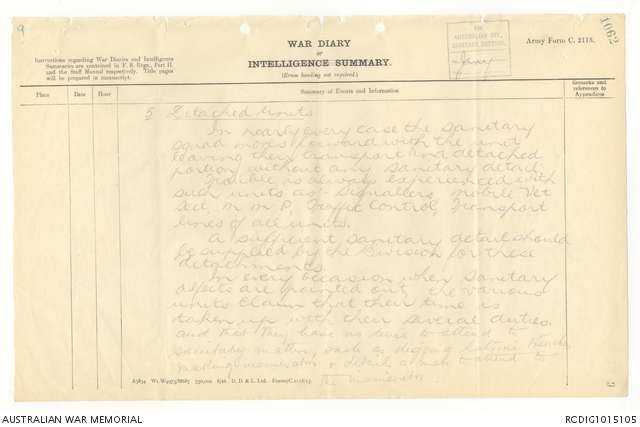 9
1062
WAR DIARY
or
INTELLIGENCE SUMMARY.
(Erase heading not required.)
Army Form C. 2118.
Instructions regarding War Diaries and Intelligence
Summaries are contained in F. S. Regs., Part II.
and the Staff Manual respectively. Title pages
will be prepared in manuscript.
AUSTRALIAN DIV.
SANITARY SECTION
Place
Date
Hour
Summary of Events and Information
Remarks and
references to
Appendices
5 Detached Units
In nearly every case the sanitary
squad moves forward with the unit
leaving their transport and detached
portion without any sanitary detail.
Trouble is always experienced with
such units as Signallers Mobile Vet
Sect, M M P, Traffic Control, Transport
lines of all units.
A sufficient sanitary detail should
be supplied by the Division for these
detachments.
In every occasion when sanitary
defects are pointed out, the various
units claim that their time is
taken up with their several duties
and that they have no time to attend to
sanitary matters, such as digging latrine trenches
making incinerators & detail a man to attend to
the incinerator
D. D. & L. Ltd.
AUSTRALIAN WAR MEMORIAL
RCDIG1015105